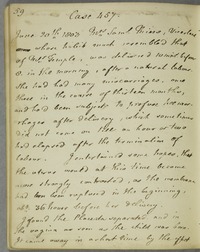 59
Case 457.
June 20th 1803 Mrs. Saml
whose habit much resembled that
of Mrs. Temple, was delivered
in the morning, after a natural labour.
She had had many miscarriages, one
these in the course of thirteen months,
and had been subject to profuse
after delivery, which sometimes
did not come on till an hour or two
had elapsed after the termination of
labour. I entertained some hopes, that
the uterus would at this time become
more strongly contracted, as the membranes
had been ruptured in the beginning,
36 hours before her delivery.
I found the Placenta separated and in
the vagina as soon as the child was born.
It came away in a short time by the effort